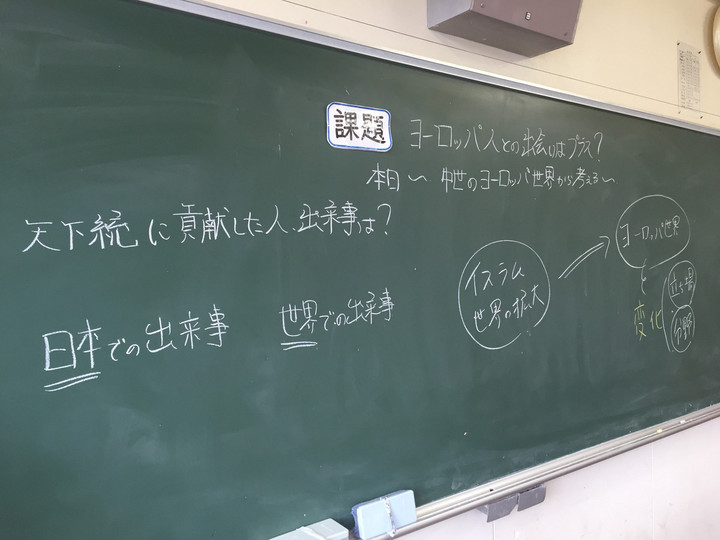 課題
ヨーロッパ人との出会いはプラス?
本日〜 中世のヨーロッパ世界から考える〜
天下統一に貢献した人、出来事は?
日本での出来事
世界での出来事
イスラム
世界の拡大
ヨーロッパ世界
と
変化
立ち場
分野